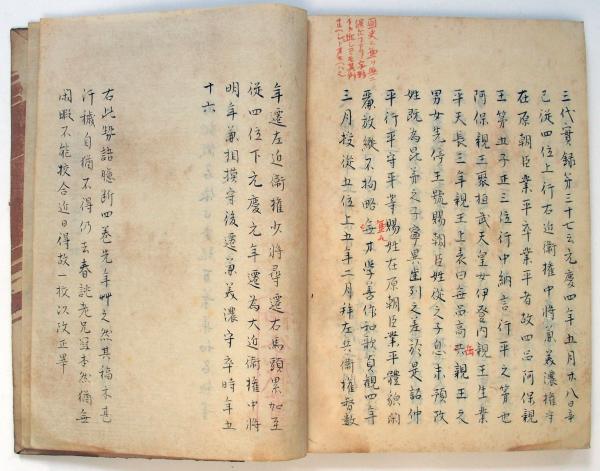 三代實録第三十七云元慶四年五月廿八日辛
巳從四位上行右近衛權中將兼美濃權守
在原朝臣業平卒業平者故四品阿保親
王第五子正三位行中納言行平之第也
阿保親王娶桓武天皇女伊登内親王生業
平天長三年親王上表曰無品高岳親王之
男女先停王號賜朝臣姓從之子息未預改
姓既為昆弟之子寧異生列之差於是詔仲
平行平守平等賜姓在原朝臣業平體貌閑
麗放縱不拘略毎才學善作和歌貞觀四年
三月授從五位上五年二月拜左兵衛權督數
年遷左近衛權少將尋遷右馬頭累加至
從四位下元慶元年遷為大近衛權中將
明年兼相摸守後遷兼美濃守卒時年五
十六
右此勢語臆断四巻先年艸之然其稿不甚
行穢自猶不得仍去春誂老兄 然猶毎
閑暇不能校合近日得故一校以改正畢